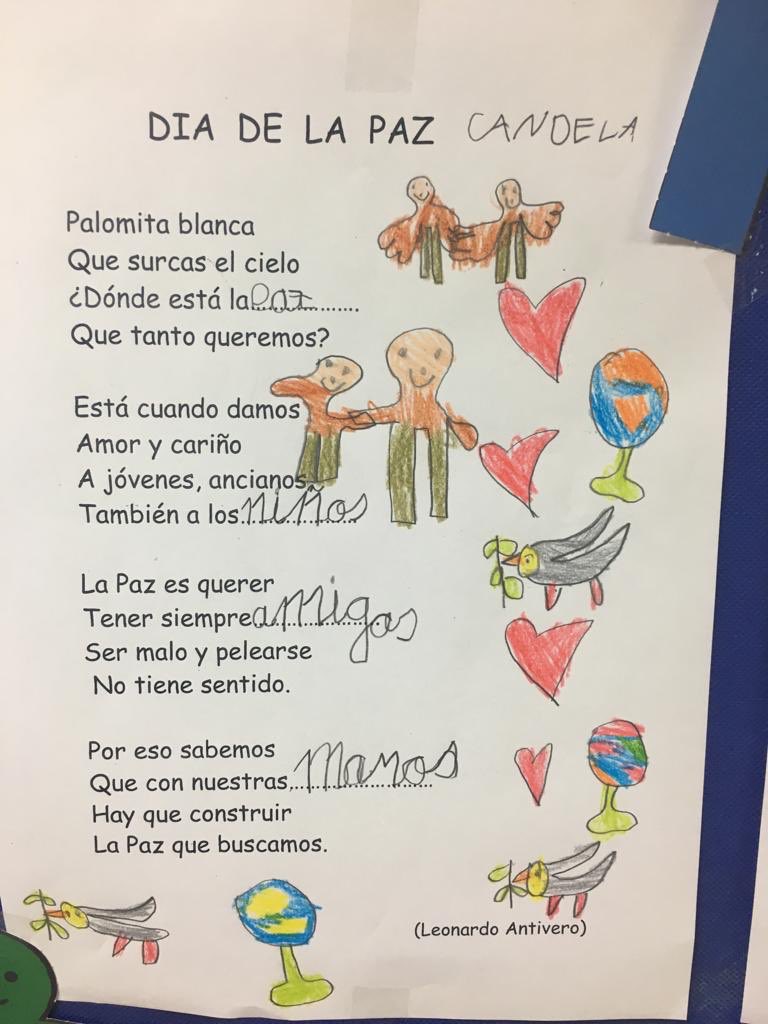 DIA DE LA PAZ CANDELA
Palomita blanca
Que surcas el cielo
¿Dónde está la Paz
Que tanto queremos?
Está cuando damos
Amor y cariño
A jóvenes, ancianos
También a los niños
La Paz es querer
Tener siempre amigas
Ser malo y pelearse
No tiene sentido.
Por eso sabemos
Que con nuestras manos
Hay que construir
La Paz que buscamos.
(Leonardo Antivero)